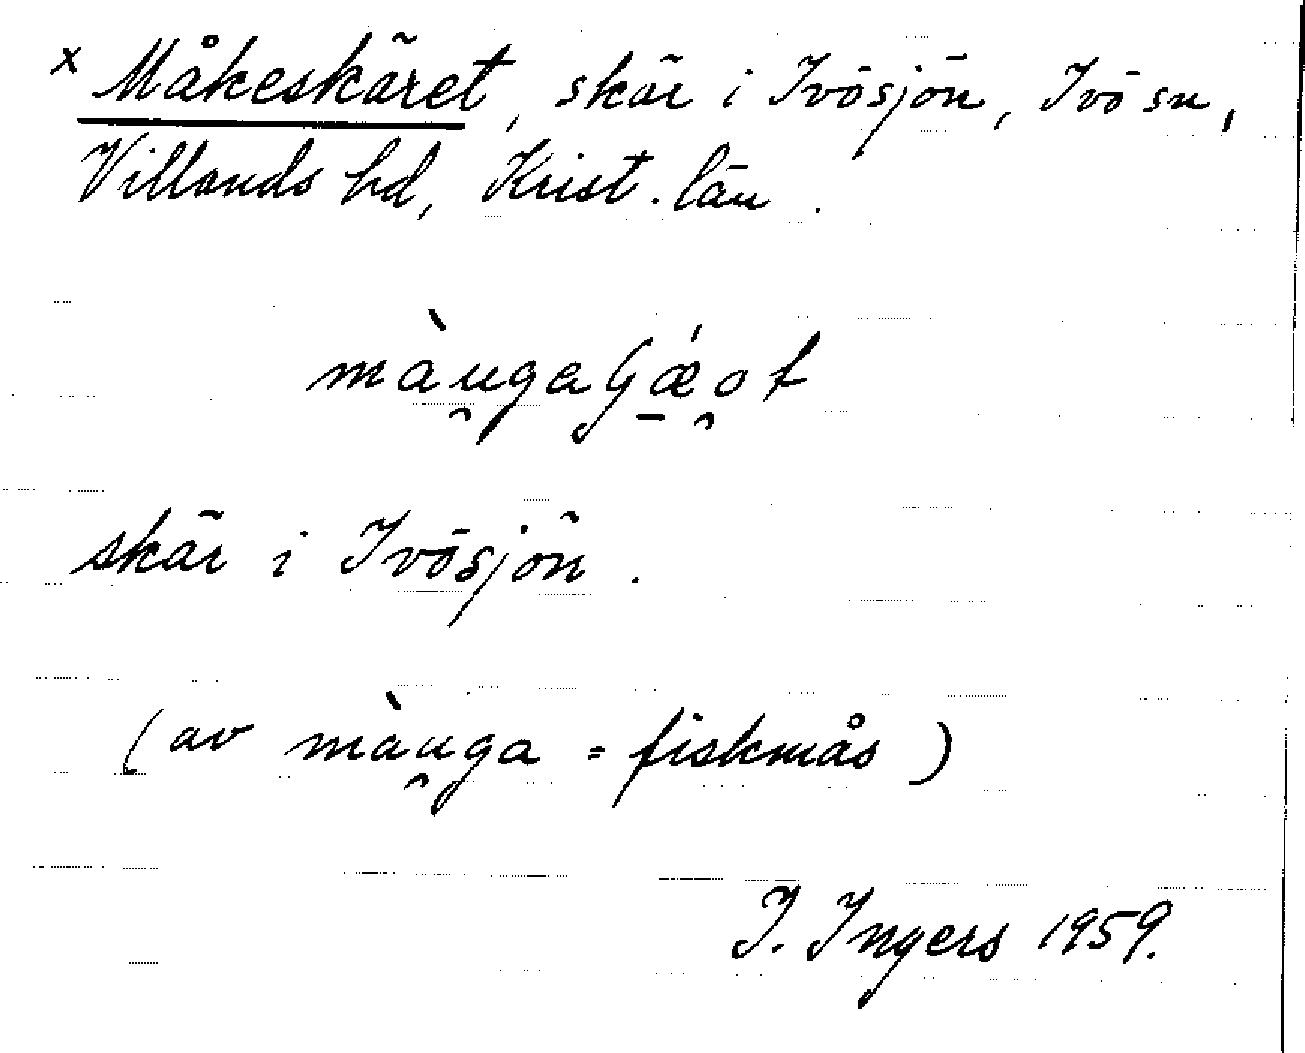 x Måkeskäret, skär i Ivösjön, Ivö sn,
Villands hd, Krist. län.
màu̯gaɠǽo̯t
skär i Ivösjön.
(av màu̯ga = fiskmås)
I. Ingers 1959.